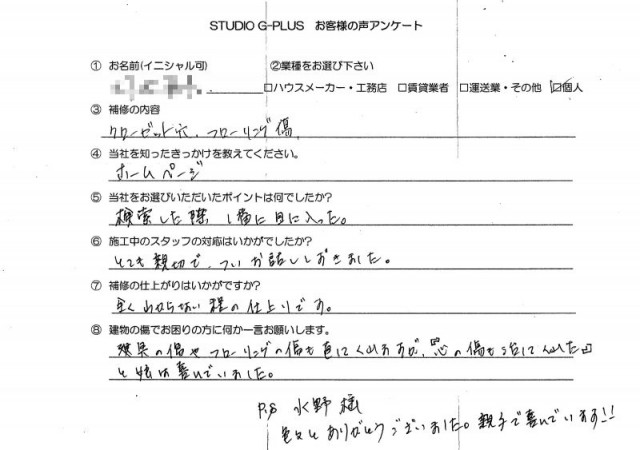 STUDIO G-PLUS お客様の声アンケート
① お名前(イニシャル可) ②業種をお選び下さい
□ハウスメーカー・工務店 □賃貸業者 □運送業・その他 ☑個人
③ 補修の内容
クローゼット穴、フローリング傷、
④ 当社を知ったきっかけを教えてください。
ホームページ
⑤ 当社をお選びいただいたポイントは何でしたか?
検索した際 1番に目に入った。
⑥ 施工中のスタッフの対応はいかがでしたか?
とても親切で、ついお話ししすぎました。
⑦ 補修の仕上がりはいかがですか?
全くわからない程の仕上りです。
⑧ 建物の傷でお困りの方に何か一言お願いします。
建具の傷やフローリングの傷も直してくれますが、『心の傷も治してくれた』
と娘は喜んでいました。
P.S 水野様
色々とありがとうございました。親子で喜んでいます!!